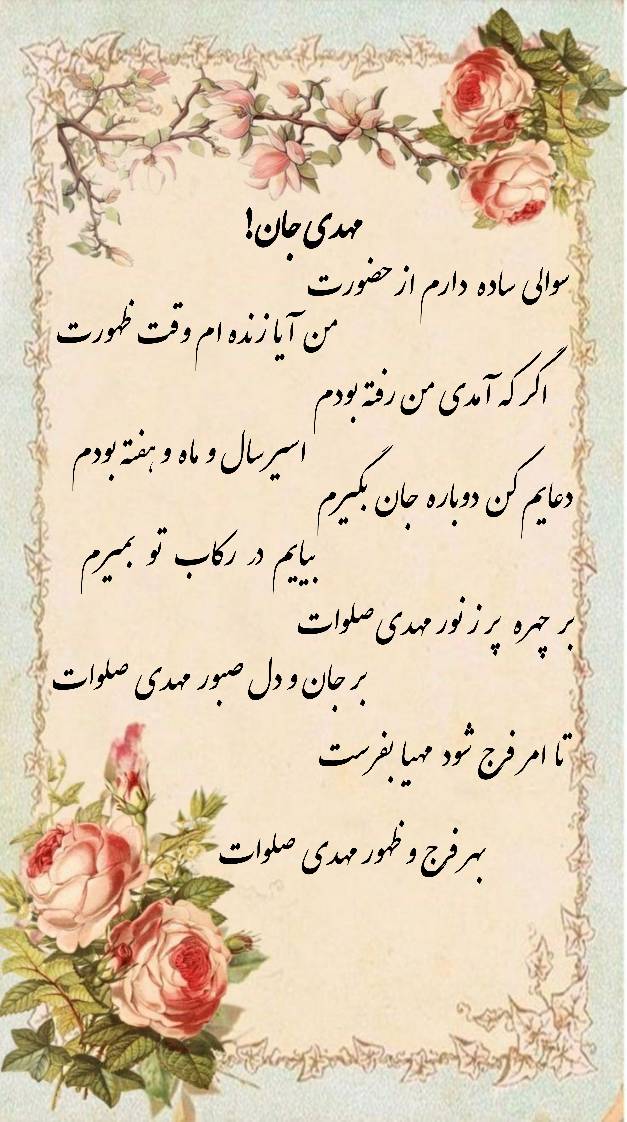 مهدی جان!
سوالی ساده دارم از حضورت
من آیا زنده ام وقت ظهورت
اگر که آمدی من رفته بودم
اسیر سال و ماه و هفته بودم
دعایم کن دوباره جان بگیرم
بیایم در رکاب تو بمیرم
بر چهره پر ز نور مهدی صلوات
بر جان و دل صبور مهدی صلوات
تا امر فرج شود مهیا بفرست
بهر فرج و ظهور مهدی صلوات